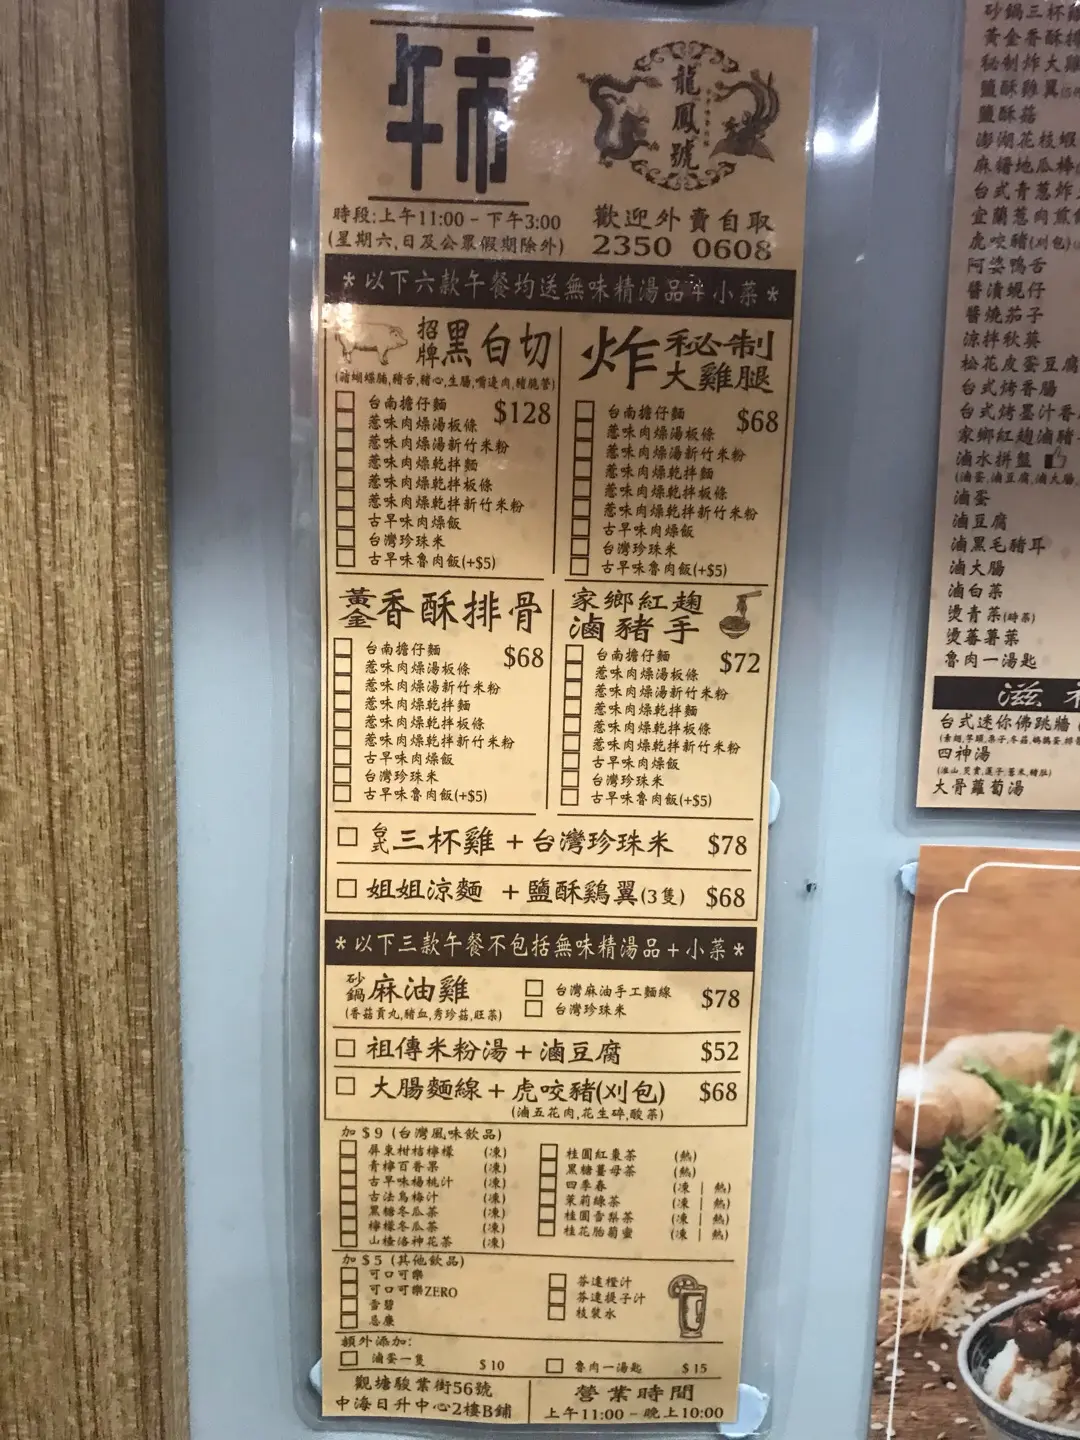 午市
龍鳳號
時段:上午11:00 - 下午3:00
(星期六,日及公眾假期除外)
歡迎外賣自取
2350 0608
*以下六款午餐均送無味精湯品+小菜*
招牌黑白切
(豬蝴蝶腩,豬舌,豬心,生腸,嘴邊肉,豬脆管)
$128
台南擔仔麵
惹味肉燥湯板條
惹味肉燥湯新竹米粉
惹味肉燥乾拌麵
惹味肉燥乾拌板條
惹味肉燥乾拌新竹米粉
古早味肉燥飯
台灣珍珠米
古早味魯肉飯(+$5)
炸秘制大雞腿
$68
台南擔仔麵
惹味肉燥湯板條
惹味肉燥湯新竹米粉
惹味肉燥乾拌麵
惹味肉燥乾拌板條
惹味肉燥乾拌新竹米粉
古早味肉燥飯
台灣珍珠米
古早味魯肉飯(+$5)
黃金香酥排骨
$68
台南擔仔麵
惹味肉燥湯板條
惹味肉燥湯新竹米粉
惹味肉燥乾拌麵
惹味肉燥乾拌板條
惹味肉燥乾拌新竹米粉
古早味肉燥飯
台灣珍珠米
古早味魯肉飯(+$5)
家鄉紅麴
滷豬手
$72
台南擔仔麵
惹味肉燥湯板條
惹味肉燥湯新竹米粉
惹味肉燥乾拌麵
惹味肉燥乾拌板條
惹味肉燥乾拌新竹米粉
古早味肉燥飯
台灣珍珠米
古早味魯肉飯(+$5)
台式三杯雞 + 台灣珍珠米 $78
姐姐涼麵 + 鹽酥鷄翼(3隻) $68
*以下三款午餐不包括無味精湯品+小菜*
砂鍋麻油雞
(香菇貢丸,豬血,秀珍菇,旺菜)
台灣麻油手工麵線
台灣珍珠米
$78
祖傳米粉湯+滷豆腐 $52
大腸麵線+虎咬豬(刈包) $68
(滷五花肉,花生碎,酸菜)
加 $9 (台灣風味飲品)
屏東柑桔檸檬 (凍)
青檸百香果 (凍)
古早味楊桃汁 (凍)
古法烏梅汁 (凍)
黑糖冬瓜茶 (凍)
檸檬冬瓜茶 (凍)
山楂洛神花茶 (凍)
桂圓紅棗茶 (熱)
黑糖薑母茶 (熱)
四季春 (凍 | 熱)
茉莉綠茶 (凍 | 熱)
桂圓雪梨茶 (凍 | 熱)
桂花胎菊蜜 (凍 | 熱)
加 $5 (其他飲品)
可口可樂
可口可樂ZERO
雪碧
忌廉
芬達橙汁
芬達提子汁
枝裝水
額外添加:
滷蛋一隻 $10
魯肉一湯匙 $15
觀塘駿業街56號
中海日升中心2樓B鋪
營業時間
上午11:00 - 晚上10:00
砂鍋三杯
黃金香酥排
秘制炸大雞
鹽酥雞翼
鹽酥菇
澎湖花枝蝦
麻糬地瓜棒
台式青蔥炸
宜蘭蔥肉煎
虎咬豬(刈包)
阿婆鴨舌
醬漬蜆仔
醬燒茄子
涼拌秋葵
松花皮蛋豆腐
台式烤香腸
台式烤墨汁香
家鄉紅麴滷豬
滷水拼盤
(滷蛋,滷豆腐,滷大腸,
滷蛋
滷豆腐
滷黑毛豬耳
滷大腸
滷白菜
燙青菜(時菜)
燙蕃薯葉
魯肉一湯匙
滋
台式迷你佛跳牆
四神湯
(淮山,茨實,蓮子,薏米,豬肚)
大骨蘿蔔湯